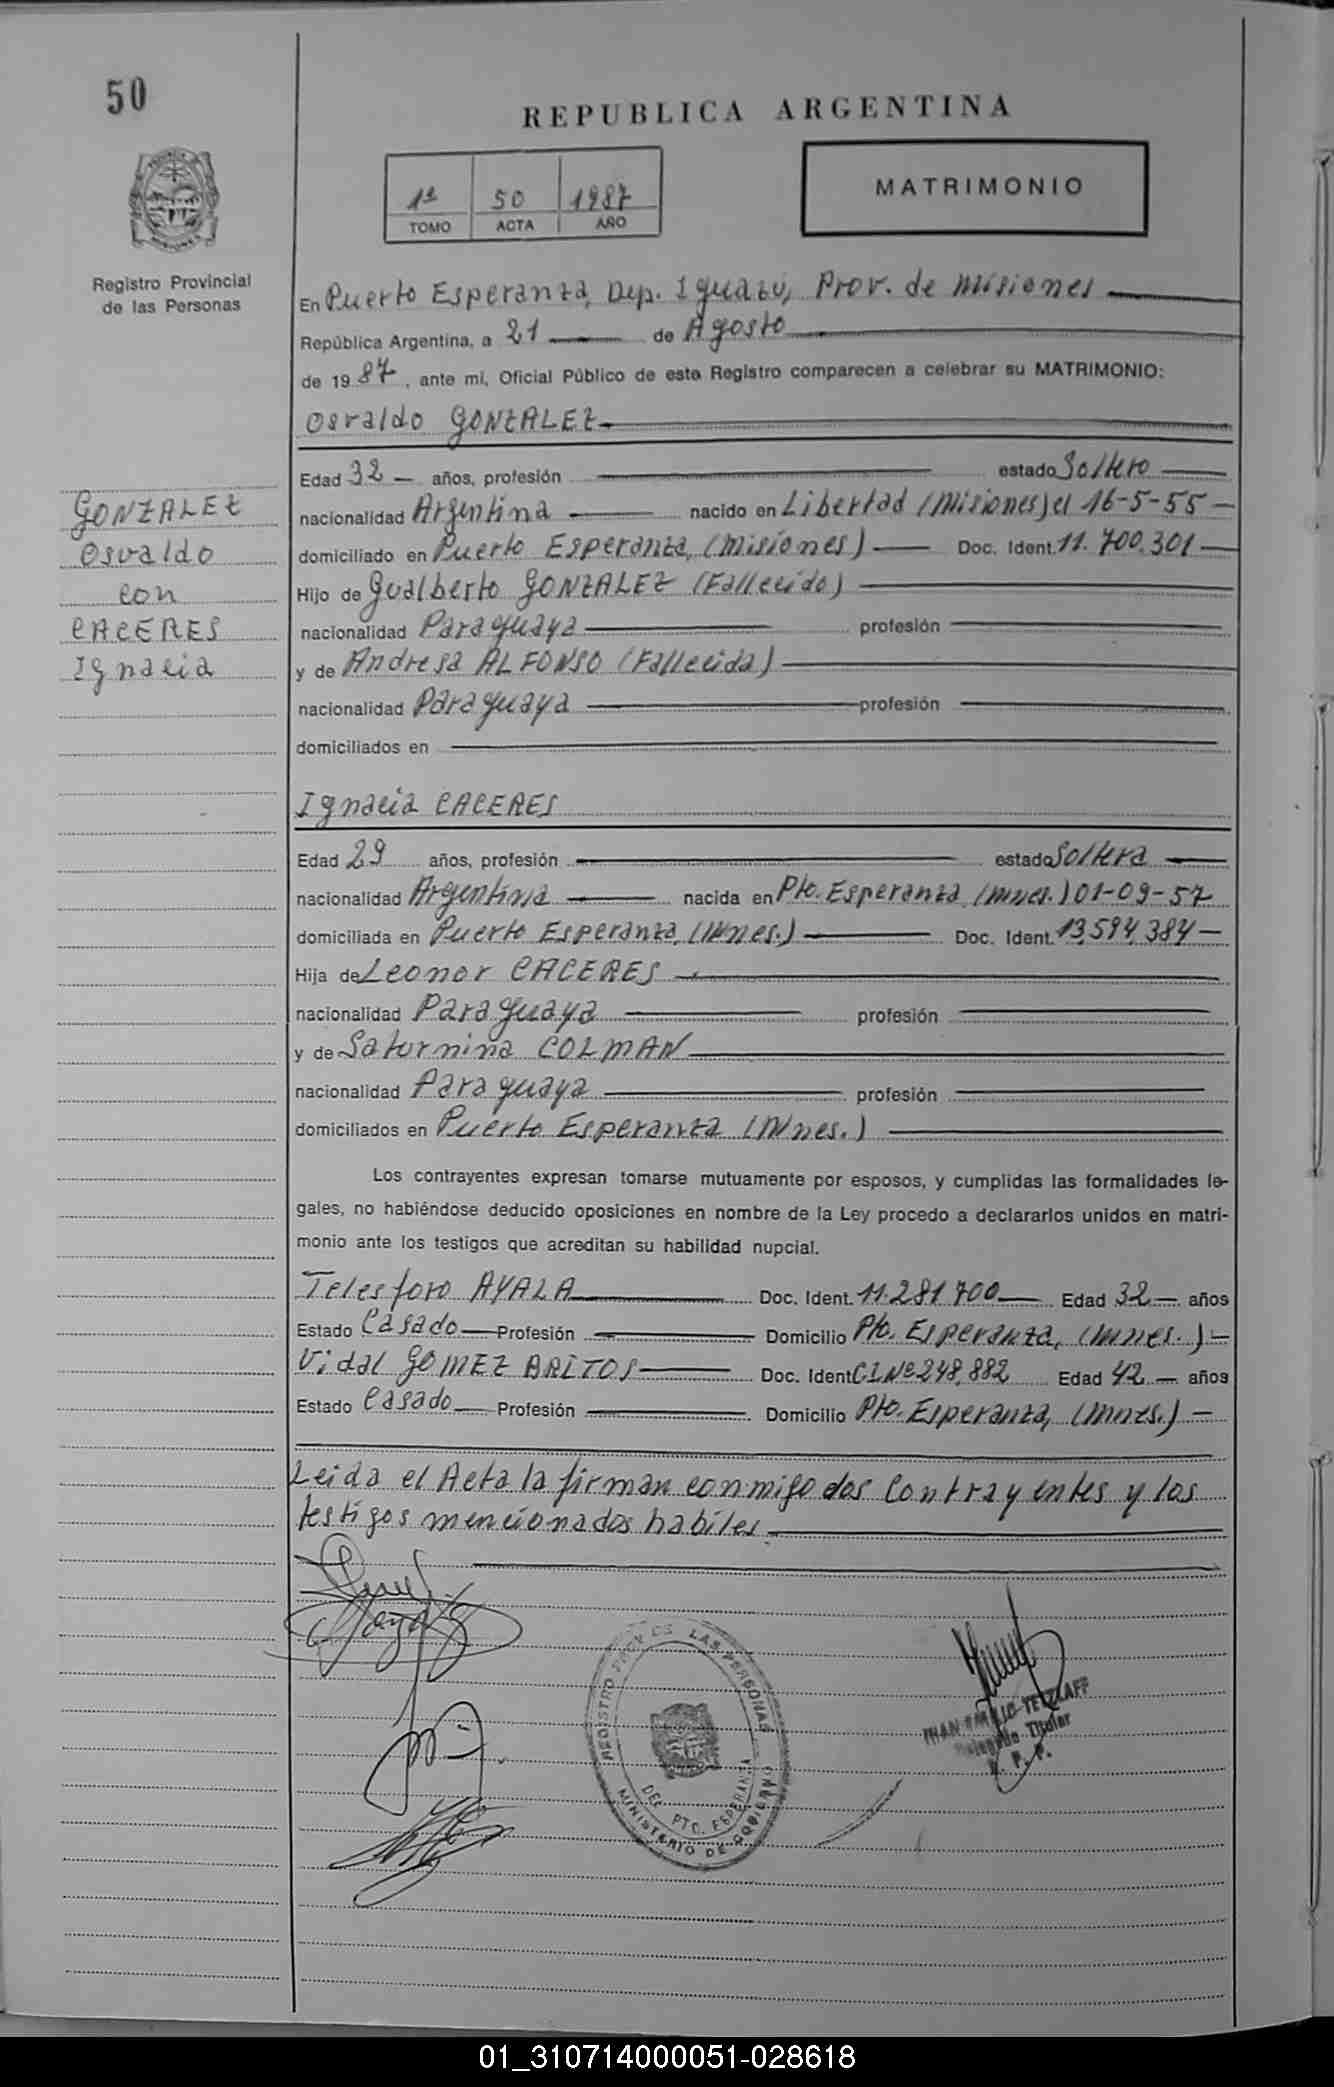 50
REPUBLICA ARGENTINA
1º 50 1987
TOMO ACTA AÑO
MATRIMONIO
Registro Provincial
de las Personas
En Puerto Esperanza, Dep. Iguazú, Prov. de Misiones
República Argentina, a 21 de Agosto
de 1987, ante mi, Oficial Público de este Registro comparecen a celebrar su MATRIMONIO:
Osvaldo GONZALEZ
GONZALEZ
Osvaldo
con
CACERES
Ignacia
Edad 32 años, profesión estado Soltero
nacionalidad Argentina nacido en Libertad (Misiones) el 16-5-55
domiciliado en Puerto Esperanza, (Misiones) Doc. Ident. 11.700.301
Hijo de Gualberto GONZALEZ (Fallecido)
nacionalidad Paraguaya profesión
y de Andresa ALFONSO (Fallecida)
nacionalidad Paraguaya profesión
domiciliados en
Ignacia CACERES
Edad 29 años, profesión estado Soltera
nacionalidad Argentina nacida en Pto. Esperanza (Mnes.) 01-09-57
domiciliada en Puerto Esperanza, (Mnes.) Doc. Ident. 13,594,384
Hija de Leonor CACERES
nacionalidad Paraguaya profesión
y de Saturnina COLMAN
nacionalidad Paraguaya profesión
domiciliados en Puerto Esperanza (Mnes.)
Los contrayentes expresan tomarse mutuamente por esposos, y cumplidas las formalidades le-
gales, no habiéndose deducido oposiciones en nombre de la Ley procedo a declararlos unidos en matri-
monio ante los testigos que acreditan su habilidad nupcial.
Telesforo AYALA Doc. Ident. 11.281.700 Edad 32 años
Estado Casado Profesión Domicilio Pto, Esperanza, (Mnes.)
Vidal GOMEZ BRITOS Doc. Ident C.I.Nº 248,882 Edad 42 años
Estado Casado Profesión Domicilio Pto. Esperanza, (Mnes.)
Leida el Acta la firman conmigo dos Contrayentes y los
testigos mencionados habiles
REGISTRO PROV DE LAS PERSONAS
DEL. PTO. ESPERANZA
MINISTERIO DE GOBIERNO
Delegado Titular
R. P. P.
01_310714000051-028618